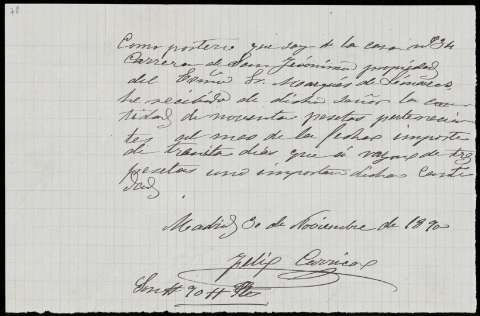 Como portero que soy de la casa nº 34
Carrera de San Jerónimo propiedad
del Exmo Sr. Marqués de Linares
he recibido de dicho señor la can
tidad de noventa pesetas pertenecien
tes al mes de la fecha importe
de treinta dias que á razon de tres
pesetas uno importan dicha canti
dad
Madrid 30 de Noviembre de 1890
Felix
Son # 90 # Ptas